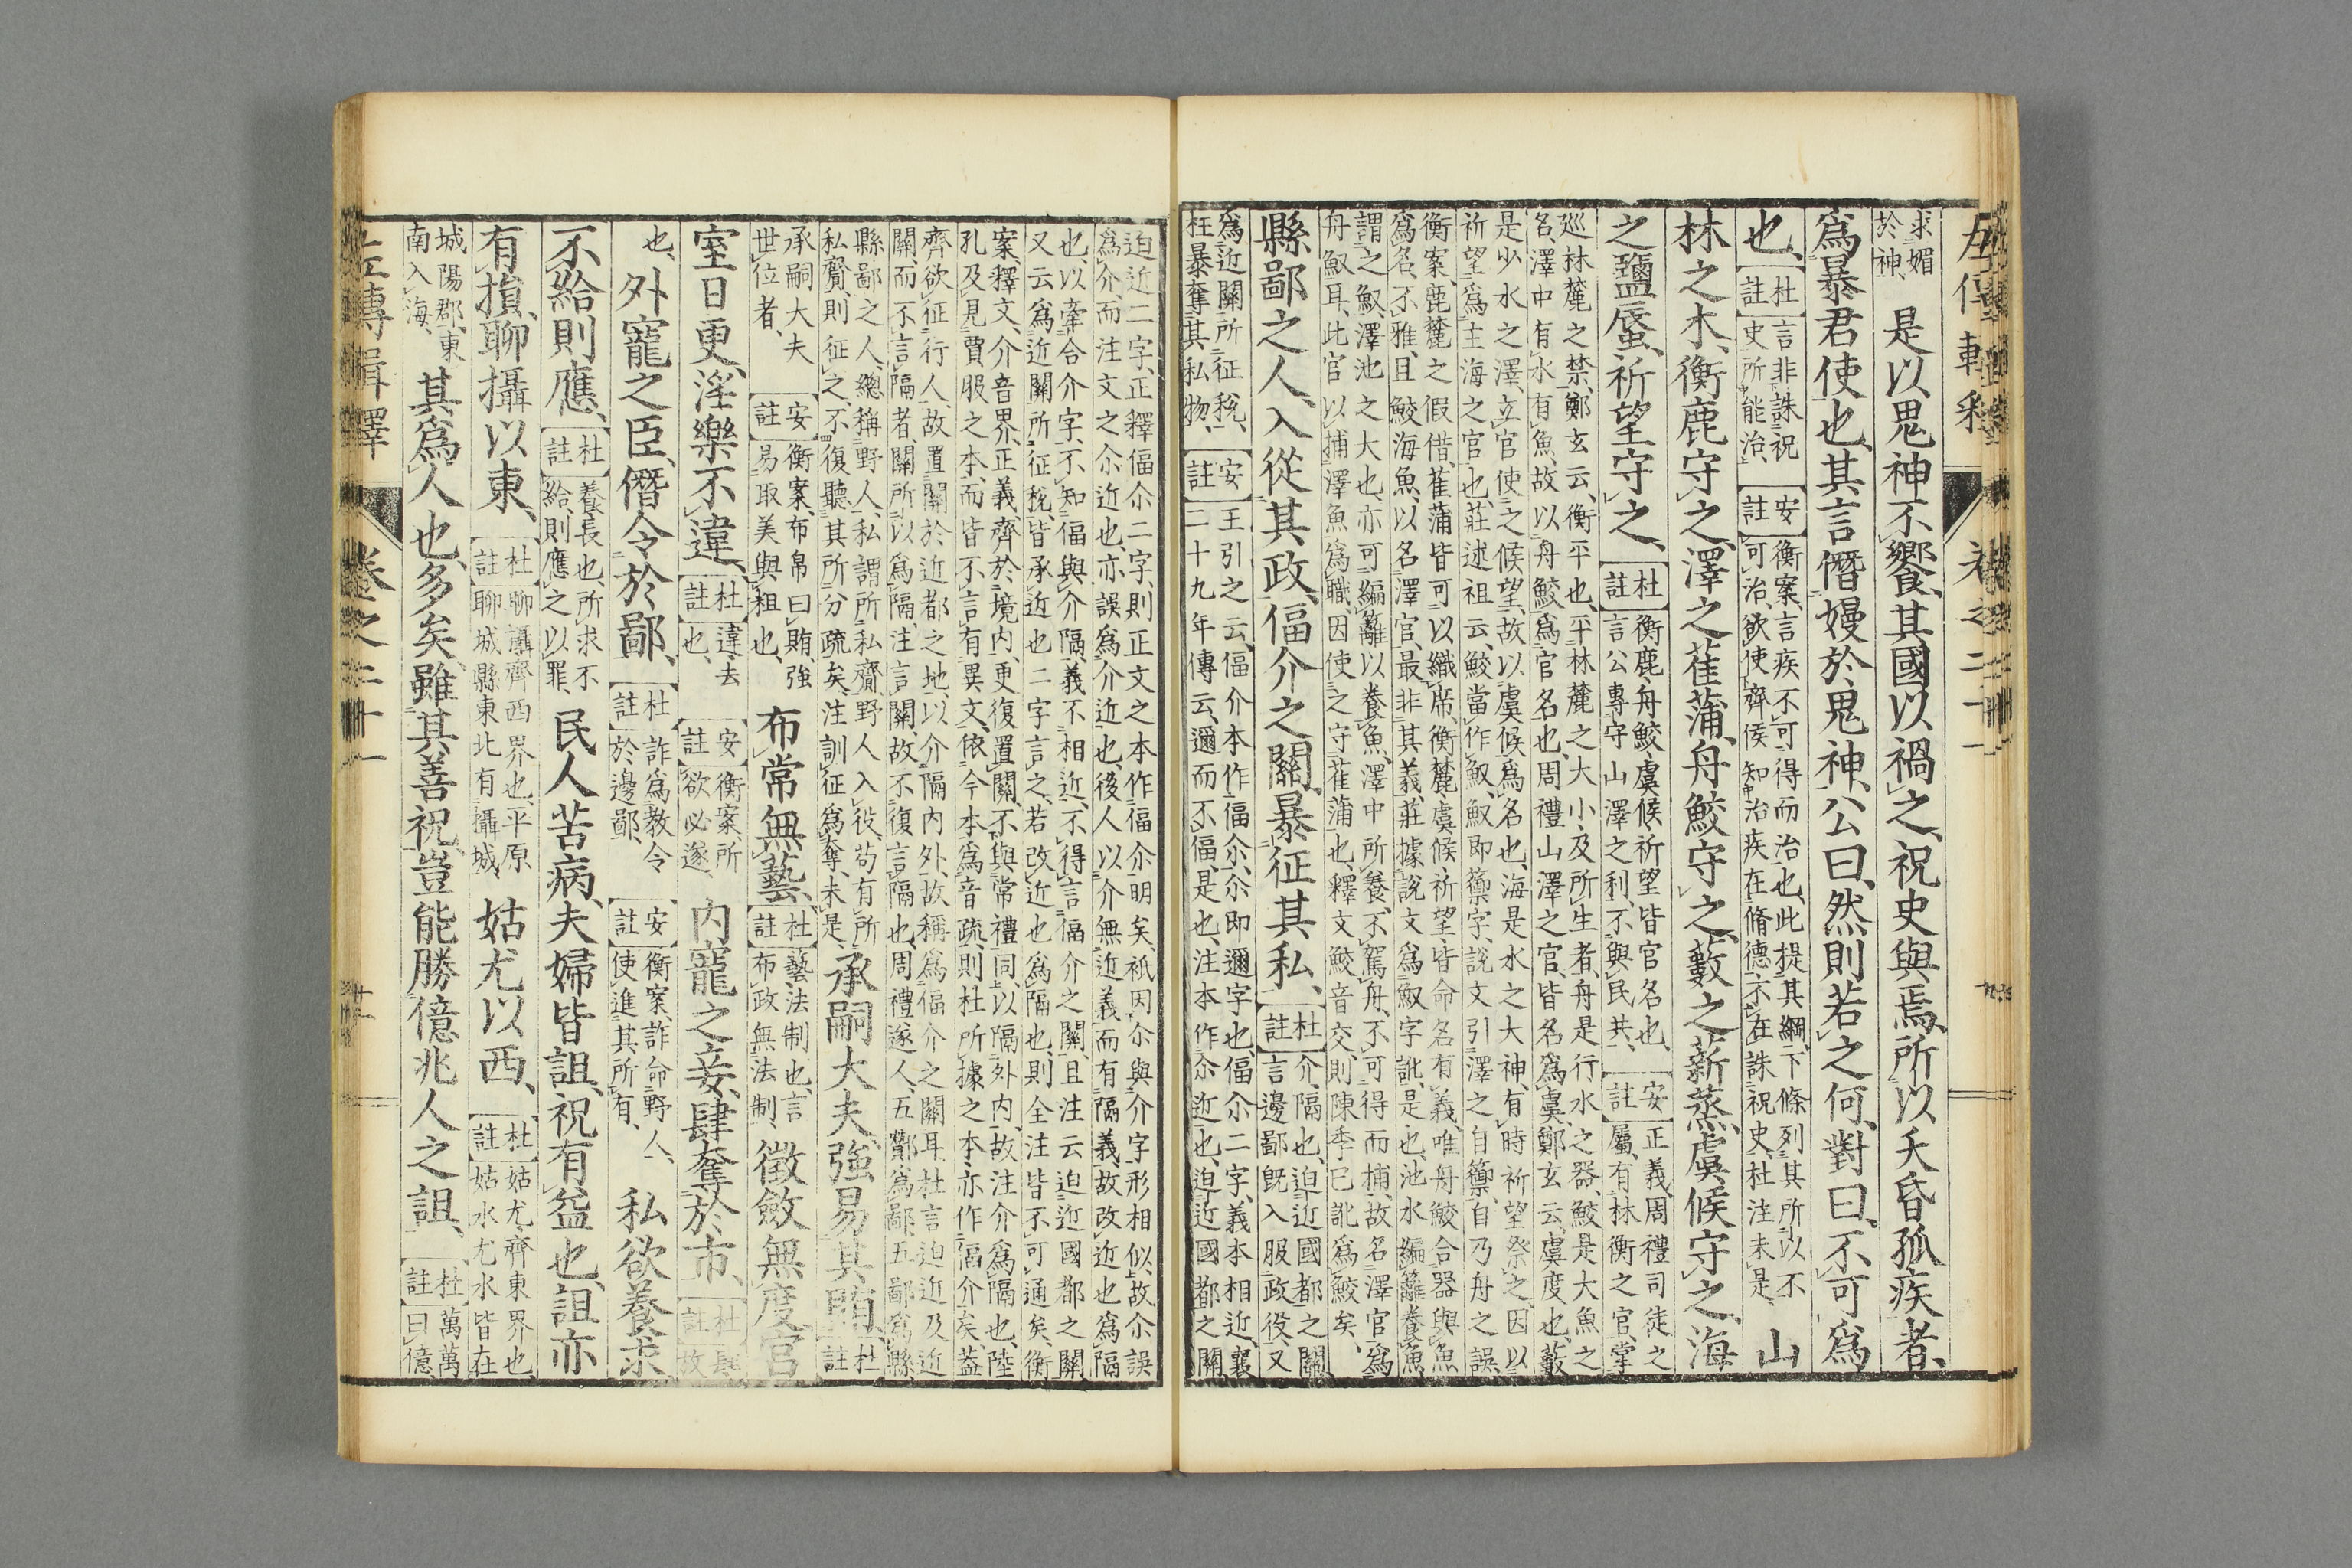 左傳輯釋 卷之二十一
求媚於神、是以鬼神不饗、其國以禍之、祝史與焉、所以夭昏孤疾者、
爲暴君使也、其言僭嫚於鬼神、公曰、然則若之何、對曰、不可爲
也、杜註言非誅祝史所能治、安註衡案、言疾不可得而治也、此提其綱、下條列其所以不可治、欲使齊侯知治疾在脩德不在誅祝史、杜注未是、山
林之木、衡鹿守之、澤之萑蒲、舟鮫守之、藪之薪蒸、虞候守之、海
之鹽蜃、祈望守之、杜註衡鹿舟鮫虞候祈望皆官名也、言公專守山澤之利、不與民共、安註正義、周禮司徒之屬、有林衡之官、掌
巡林麓之禁、鄭玄云、衡平也、平林麓之大小、及所生者、舟是行水之器、鮫是大魚之
名、澤中有水有魚、故以舟鮫爲官名也、周禮山澤之官、皆名爲虞、鄭玄云、虞度也、藪
是少水之澤、立官使之候望、故以虞候爲名也、海是水之大神、有時祈望祭之、因以
祈望爲主海之官也、莊述祖云、鮫當作䱷、䱷即籞字、說文引澤之自籞、自乃舟之誤
衡案、鹿麓之假借、萑蒲皆可以織席、衡麓虞候祈望皆命名有義、唯舟鮫合器與魚
爲名、不雅、且鮫海魚、以名澤官、最非其義、莊據說文爲䱷字訛、是也、池水編籬養魚
謂之䱷、澤池之大也、亦可編籬以養魚、澤中所養、不駕舟、不可得而捕、故名澤官爲
舟䱷耳、此官以捕澤魚爲職、因使之守萑蒲也、釋文鮫音交、則陳季已訛爲鮫矣、
縣鄙之人、入從其政、偪介之關、暴征其私、杜註介、隔也、迫近國都之關、言邊鄙既入服政役、又
爲近關所征稅、枉暴奪其私物、安註王引之云、偪介本作偪尒、尒即邇字也、偪尒二字、義本相近、襄二十九年傳云、邇而不偪、是也、注本作尒近也、迫近國都之關
迫近二字、正釋偪尒二字、則正文之本作偪尒明矣、衹因尒與介字形相似、故尒誤
爲介、而注文之尒近也、亦誤爲介近也、後人以介無近義、而有隔義、故改近也爲隔
也、以牽合介字、不知偪與介隔、義不相近、不得言偪介之關、且注云迫近國都之關
又云爲近關所征稅、皆承近也二字言之、若改近也爲隔也、則全注皆不可通矣、衡
案、釋文、介音界、正義、齊於境內、更復置關、不與常禮同、以隔外內、故注介爲隔也、陸
孔及見賈服之本、而皆不言有異文、依今本爲音疏、則杜所據之本、亦作偪介矣、蓋
齊欲征行人、故置關於近都之地、以介隔內外、故稱爲偪介之關耳、杜言迫近及近
關、而不言隔者、關所以爲隔、注言關、故不復言隔也、周禮遂人、五酇爲鄙、五鄙爲縣
縣鄙之人、總稱野人、私謂所私齎、野人入役、苟有所
私齎、則征之、不復聽其所分疏矣、注訓征爲奪、未是、承嗣大夫、強易其賄、杜註
承嗣大夫世位者、安註衡案、布帛曰賄、強易取美與粗也、布常無藝、杜註藝、法制也、言布政無法制、徵斂無度、宮
室日更、淫樂不違、杜註違、去也、安註衡案、所欲必遂內寵之妾、肆奪於市、杜註肆放
也、外寵之臣、僭令於鄙、杜註詐爲教令於邊鄙、安註衡案、詐命野人、使進其所有、私欲養求
不給則應、杜註養、長也、所求不給、則應之以罪、民人苦病、夫婦皆詛、祝有益也、詛亦
有損、聊攝以東、杜註聊攝齊西界也、平原聊城縣東北有攝城、姑尤以西、杜註姑尤、齊東界也姑水尤水皆在
城陽郡、東南入海、其爲人也、多矣、雖其善祝、豈能勝億兆人之詛、杜註萬萬曰億
左傳輯釋 卷之二十一